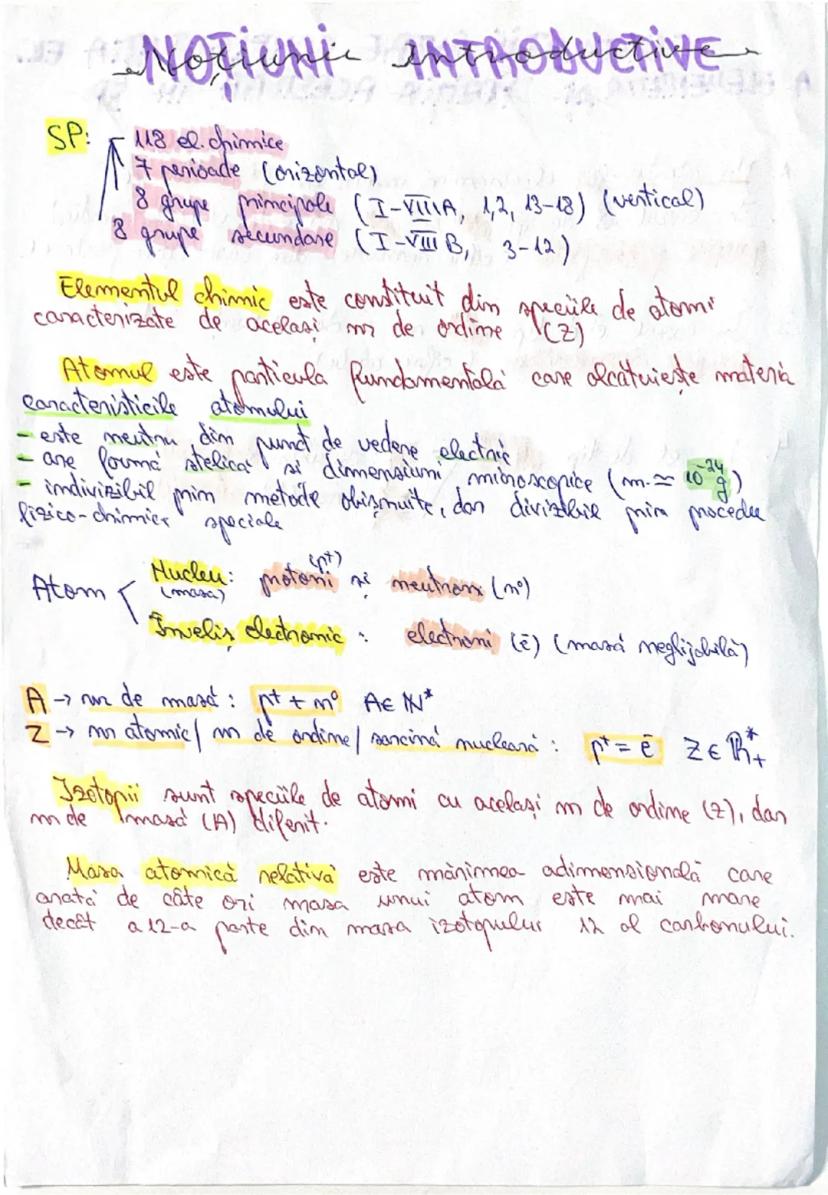 NOȚIUNI INTRODUCTIVE
Noțiuni introductive
SP: 118 el. chimice
7 perioade (orizontal)
8 grupe principale (I-VIII A, 1,2, 13-18) (vertical)
8 grupe secundare (I-VIII B, 3-12)
Elementul chimic este constituit din speciile de atomi
caracterizate de același nr de ordine (Z)
Atomul este particula fundamentală care alcătuiește materia
caracteristicile atomului
- este neutru din punct de vedere electric
- are formă sferică și dimensiuni microscopice (m ≃ 10⁻²⁴ g)
- indivizibil prin metode obișnuite, dar divizibil prin procedee
fizico-chimice speciale
Atom < Nucleu: protoni (p⁺) și neutroni (n⁰)
(masa)
Înveliș electronic: electroni (ē) (masă neglijabilă)
A → nr de masă: p⁺ + n⁰ A∈ℕ*
Z → nr atomic / nr de ordine / sarcină nucleară: p⁺ = ē Z∈ℝ*₊
Izotopii sunt speciile de atomi cu același nr de ordine (Z), dar
nr de masă (A) diferit.
Masa atomică relativă este mărimea adimensională care
arată de câte ori masa unui atom este mai mare
decât a 12-a parte din masa izotopului 12 al carbonului.